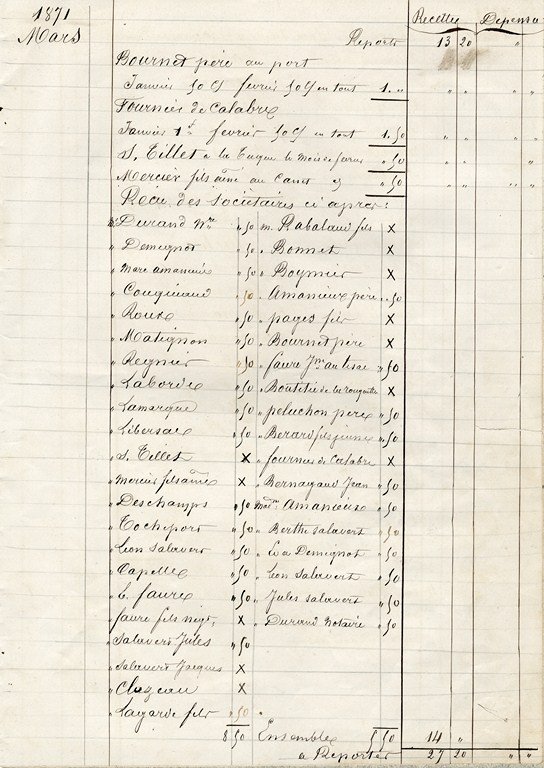 1871 Recettes Depenses
Mars Reports 13 20 "
Bournet père au port
Janvier 50 c/ fevrier 50 c/ en tout 1 " " " "
Fournier de Calabre
Janvier 1 f fevrier 50 c/ en tout 1.50 " " " "
S. Tillet a la le mois de " 50 " " "
Mercier fils ainé au Canet " 50 " " " "
Recu des societaires ci apres:
" Durand " 50 m. Rabalaud fils X
" Demignot " 50 " Bonnet X
" Marc amanieu " 50 " Boymier X
" Couginaud " 50 " Amanieux père " 50
" Roux " 50 " pages fils X
" Matignon " 50 " Bournet père X
" Reynier " 50 " faure Jne au " 50
" Laborde " 50 " Boutitie de la X
" Lamarque " 50 " peluchon père " 50
" Libersac " 50 " Berard fils jeune " 50
" S. Tillet X " fournier de Calabre X
" mercier fils ainé X " Bernagaud Jean " 50
" Deschamps " 50 Amanieux " 50
" Rocheport " 50 " Berthe Salavert " 50
" Leon Salavert " 50 " Demignot " 50
" Capelle " 50 " Leon Salavert " 50
" faure " 50 " Jules Salavert " 50
" faure fils X " Durand Notaire " 50
" Salavert Jules " 50
" Salavert Jacques X
" Cluzeau X
" Lagarde fils " 50 "
8 50 Ensemble 5 50 14 "
a Reporter 27 20 " "